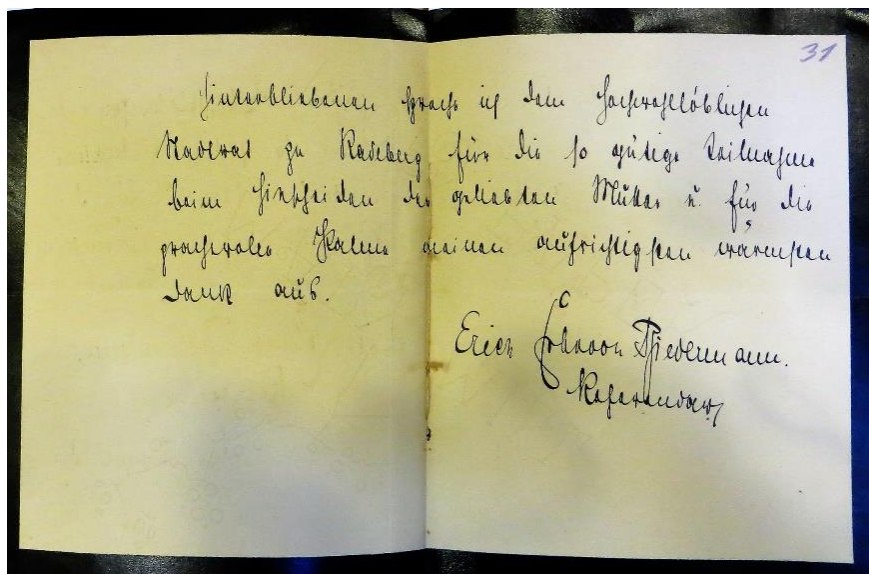 31
Hinterbliebenen spreche ich dem Hochwohllöblichen
Stadtrat zu Radeberg für die so gütige Teilnahme
beim Hinscheiden der geliebten Mutter u. für die
prachtvolle Palme meinen aufrichtigsten wärmsten
Dank aus.
Erich Biedermann.
Referendar